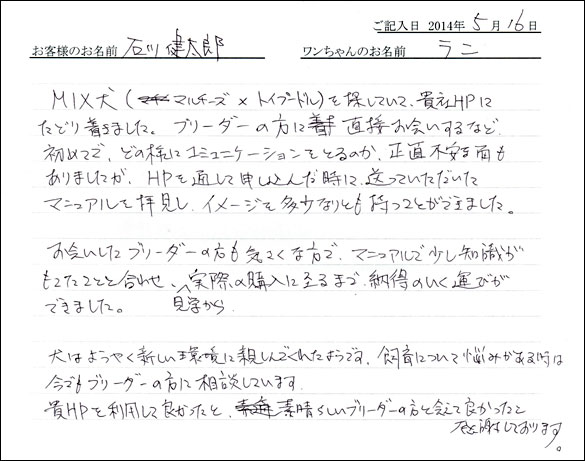 ご記入日 2014年 5月 16日
お客様のお名前 石川 健太郎 ワンちゃんのお名前 ラニ
MIX犬(マルチーズ×トイプードル)を探していて、貴社HPに
たどり着きました。ブリーダーの方に直接お会いするなど
初めてで、どの様にコミュニケーションをとるのか、正直不安な面も
ありましたが、HPを通して申し込んだ時に送っていただいた
マニュアルを拝見し、イメージを多少なりとも持つことができました。
お会いしたブリーダーの方も気さくな方で、マニュアルで少し知識が
もてたことと合わせ、見学から実際の購入に至るまで納得のいく運びが
できました。
犬はようやく新しい環境に親しんでくれたようです。飼育について悩みがある時は
今でもブリーダーの方に相談しています。
貴HPを利用して良かったと、素晴らしいブリーダーの方と会えて良かったと
感謝しております。